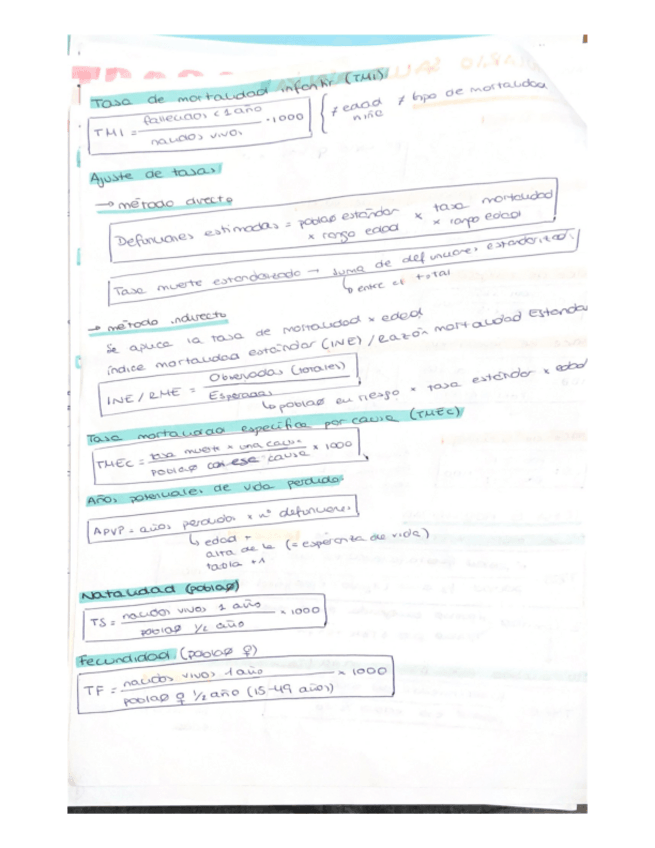 Tasa de mortalidad infantil (TMI)
TMI = fallecidos < 1 año / nacidos vivos · 1000 { ≠ edad niñe ≠ tipo de mortalidad
Ajuste de tasas
→ método directo
Defunciones estimadas = poblaø estándar x rango edad x tasa mortalidad x rango edad
Tasa muerte estandarizado → suma de defunciones estandarizad.
↳ entre el total
→ método indirecto
Se aplica la tasa de mortalidad x edad
índice mortalidad estándar (INE) / Razón mortalidad Estándar
INE / RME = Observadas (totales) / Esperadas
↳ poblaø en riesgo x tasa estándar x edad
Tasa mortalidad específica por causa (TMEC)
TMEC = tasa muerte x una causa / poblaø con esa causa x 1000
Años potenciales de vida perdidos
APVP = años perdidos x nº defunciones
↳ edad +
alta de la (= esperanza de vida)
tabla +1
Natalidad (poblaø)
TS = nacidos vivos 1 año / poblaø 1/2 año x 1000
Fecundidad (poblaø ♀)
TF = nacidos vivos 1 año / poblaø ♀ 1/2 año (15-49 años) x 1000